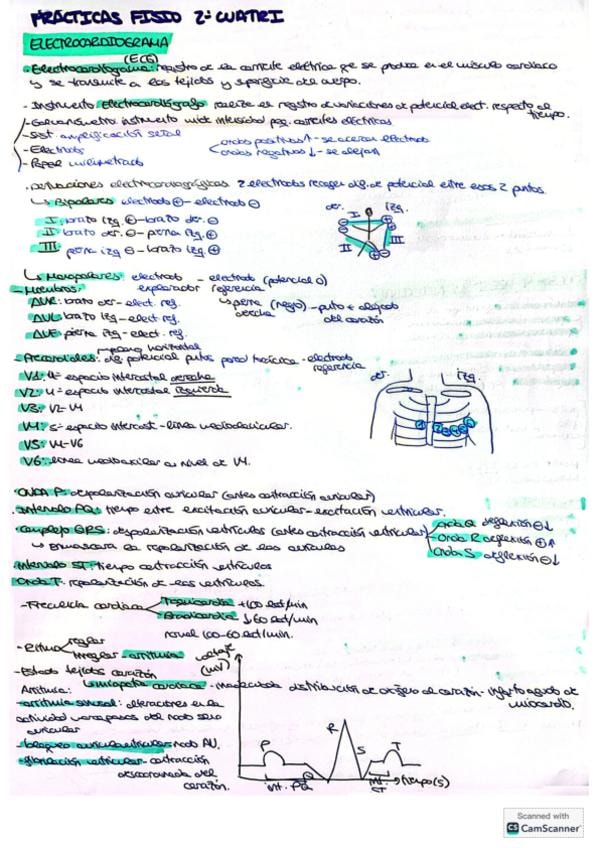 PRÁCTICAS FISIO 2º CUATRI
ELECTROCARDIOGRAMA
(ECG)
· Electrocardiograma: registro de la corriente eléctrica que se produce en el músculo cardíaco
y se transmite a los tejidos y superficie del cuerpo.
- Instrumento Electrocardiógrafo realiza el registro de variaciones de potencial elect. respecto al
tiempo.
- Galvanómetro instrumento mide intensidad peq. corrientes eléctricas
- Sist. amplificación señal
ondas positivas ↑ - se acercan electrodo
- Electrodos
ondas negativas ↓ - se alejan
- Papel milimetrado
· Derivaciones electrocardiográficas 2 electrodos recogen dif. de potencial entre esos 2 puntos.
↳ Bipolares electrodo ⊕ - electrodo ⊖
der. izq.
I brazo izq ⊕ - brazo der. ⊖
II brazo der. ⊖ - pierna izq. ⊕
III pierna izq ⊕ - brazo izq ⊕
I II III
↳ Monopolares: electrodo - electrodo (potencial 0)
explorador referencia
- Miembros:
AVR: brazo der - elect. ref.
↳ pierna (negro) - punto + alejado
derecha del corazón
AVL: brazo izq - elect. ref.
AVF: pierna izq - elect. ref.
plano horizontal
- Precordiales: dif. potencial puntos pared torácica - electrodo
referencia
V1: 4º espacio intercostal derecho
der. izq.
V2: 4º espacio intercostal izquierda
V3: V2-V4
V4: 5º espacio intercost - línea medioclavicular.
V5: V4-V6
V6: línea medioaxilar a nivel de V4.
· Onda P: despolarización auricular (antes contracción auricular)
· Intervalo PQ: tiempo entre excitación auricular - excitación ventricular.
· Complejo QRS: despolarización ventrículos (antes contracción ventricular)
Onda Q deflexión ⊖↓
Onda R deflexión ⊕↑
Onda S deflexión ⊖↓
↳ Enmascara la repolarización de las aurículas
· Intervalo ST: tiempo contracción ventrículos
Onda T: repolarización de los ventrículos.
- Frecuencia cardíaca
Taquicardia +100 lat/min
Bradicardia ↓60 lat/min
normal 60-100 lat/min.
- Ritmo
regular
irregular - arritmia
voltaje
(mV)
- Estado tejidos corazón
↳ miopatía cardíaca - inadecuada distribución de oxígeno al corazón - infarto agudo de
miocardio.
Arritmia:
- arritmia sinusal: alteraciones en la
actividad marcapasos del nodo seno
auricular
- bloqueo auriculoventricular: nodo AV.
- fibrilación ventricular - contracción
descoordinada del
corazón.
P Q R S T
int. PQ
int.
ST
tiempo (s)
Scanned with
CS CamScanner